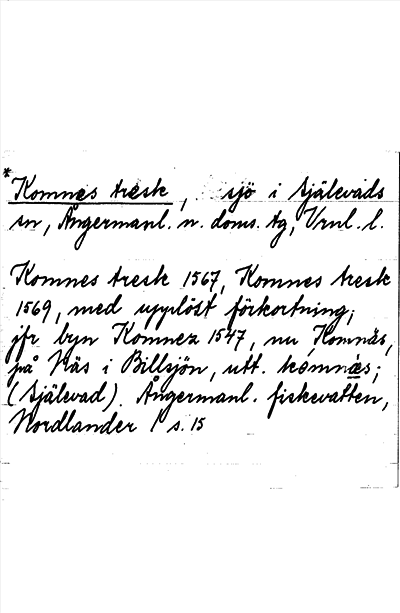 *
Komnes tresk, sjö i Själevads
sn, Ångermanl. n. doms. tg, Vrnl. l.
Komnes tresk 1567, Komnes tresk
1569, med upplöst förkortning;
jfr byn Komnez 1547, nu Komnäs,
på Näs i Billsjön, utt. kómnæs;
(Själevad). Ångermanl. fiskevatten,
Nordlander s. 15